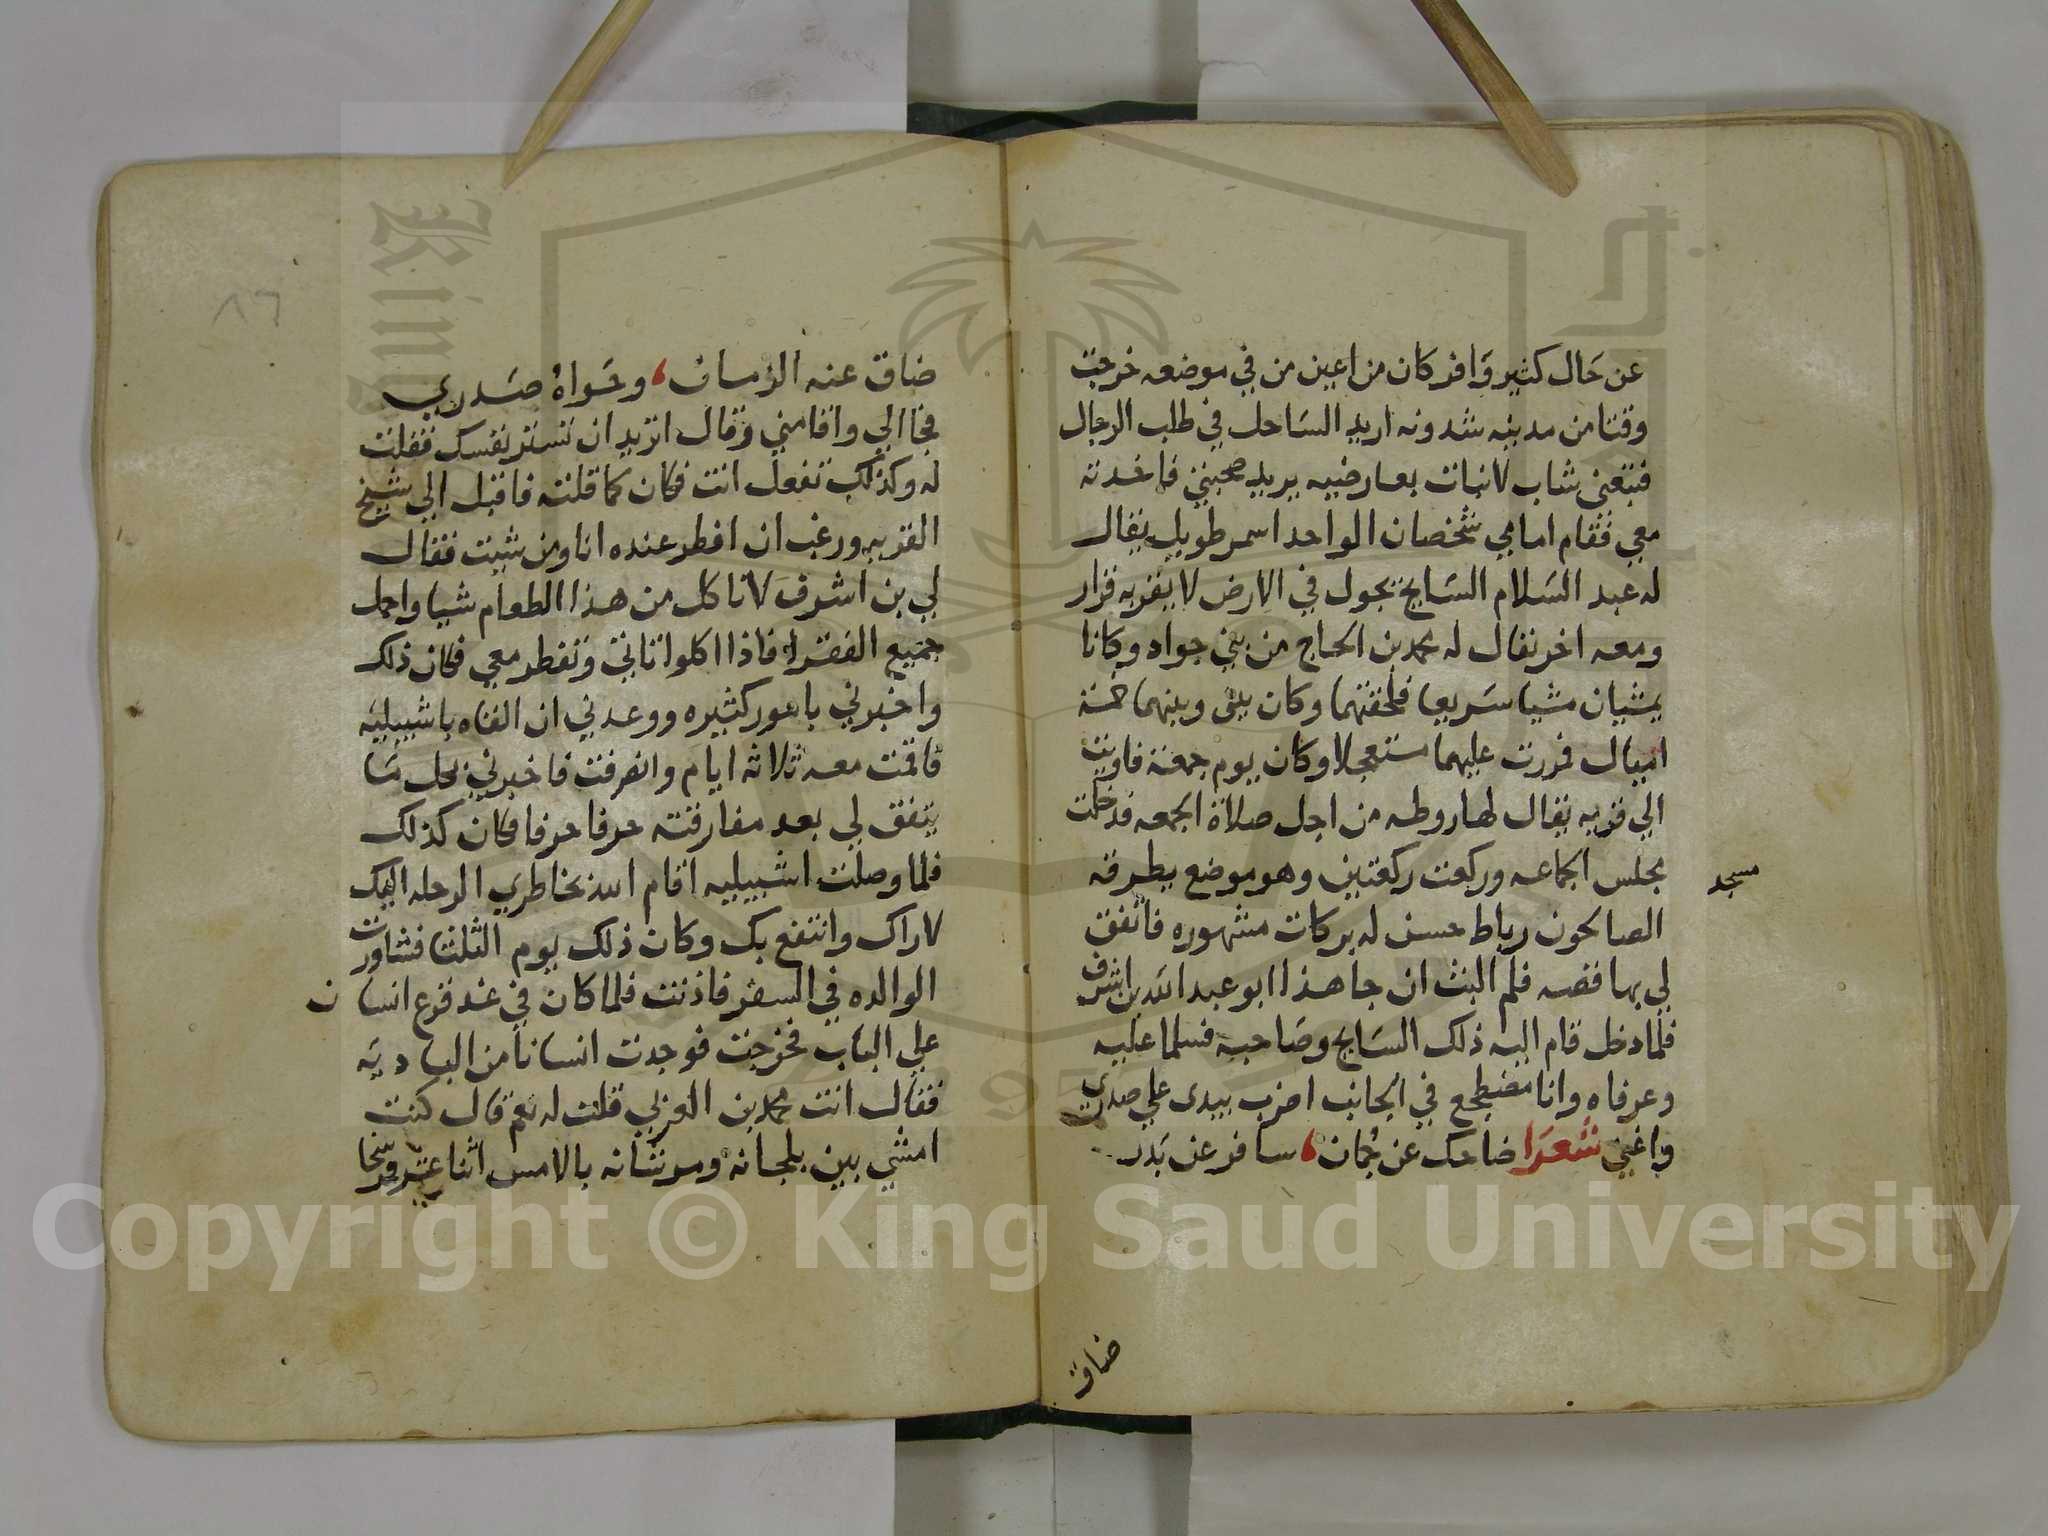 عن حال كثير وافر كان من اعين من في موضعه خرجت
وقتا من مدينه شدونه اريد الساحل في طلب الرجال
فتبعني شاب لا نبات بعارضيه يريد صحبتي فاخدته
معي فقام امامي شخصان الواحد اسمر طويل يقال
له عبد السلام السايح يجول في الارض لا يقر به قرار
ومعه اخر يقال له محمد بن الحاج من بني جواد وكانا
يمشيان مشيا سريعا فلحقتهما وكان بيني وبينهما خمسة
اميال فمررت عليهما مستعجلا وكان يوم جمعة فاويت
الي قريه يقال لها روطه من اجل صلاة الجمعه فدخلت
مجلس الجماعه وركعت ركعتين وهو موضع يطرقه
مسجد
الصالحون رباط حسن له بركات مشهوره فاتفق
لي بها قصه فلم البث ان جا هذا ابو عبد الله بن اشرف
فلما دخل قام اليه ذلك السايح وصاحبه فسلما عليه
وعرفاه وانا مضطجع في الجانب اضرب بيدي علي صدري
واغني شعرا ضاحك عن جمان ، سافر عن بدر
ضاق
٨٦
ضاق عنه الزمان ، وحواه صدري
فجا الي واقامني وقال اتريد ان تستر نفسك فقلت
له وكذلك تفعل انت فكان كما قلته فاقبل الي شيخ
القريه ورغب ان افطر عنده انا ومن شيت فقال
لي بن اشرف لا تاكل من هذا الطعام شيا واحمل
جميع الفقرا فاذا اكلوا تاتي وتفطر معي فكان ذلك
واخبرني بامور كثيره ووعدني ان القاه باشبيليه
فاقمت معه ثلاثه ايام وانفرقت فاخبرني بكل ما
يتفق لي بعد مفارقته حرفا حرفا فكان كذلك
فلما وصلت اشبيليه اقام الله بخاطري الرحله اليك
لاراك وانتفع بك وكان ذلك يوم الثلثا فشاورت
الوالده في السفر فاذنت فلما كان في غد قرع انسان
علي الباب فخرجت فوجدت انسانا من الباديه
فقال انت محمد بن العربي قلت له نعم قال كنت
امشي بين بلجانه ومرشانه بالامس اثنا عشر فرسخا